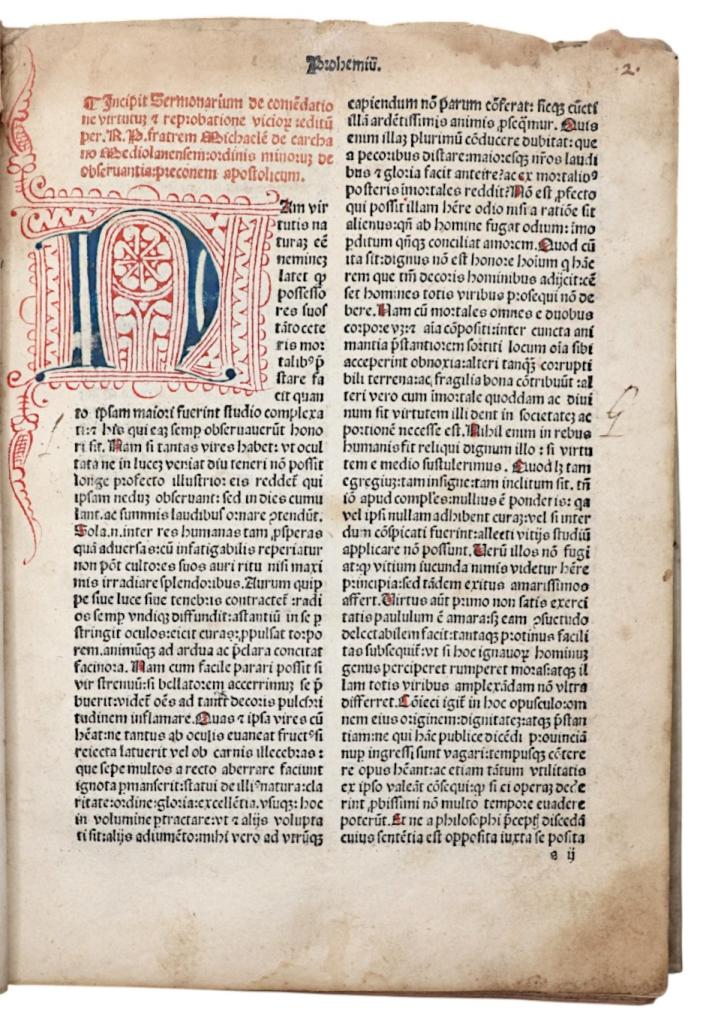 Prohemiū.
2.
¶ Incipit Sermonarium de comēdatio
ne virtutuꝫ ⁊ reprobatione vicioꝝ editū
per. R. P. fratrem Michaelē de carcha
no Mediolanensem: ordinis minoruꝫ de
obseruantia: preconem apostolicum.
NAm vir
tutis na
turaꝫ eē
nemineꝫ
latet ꝙ
possesso
res suos
tāto cete
ris mor
talibꝰ p̄
stare fa
cit quan
to ipsam maiori fuerint studio complexa
ti: ⁊ his qui eaꝫ semꝑ obseruauerūt hono
ri sit. Nam si tantas vires habet: vt ocul
tata ne in luceꝫ veniat diu teneri nō possit
longe profecto illustrio: eis reddet qui
ipsam neduꝫ obseruant: sed in dies cumu
lant. ac summis laudibus ornare ꝓtendūt.
Sola .n. inter res humanas tam ꝓsperas
quā aduersas: cū infatigabilis reperiatur
non pōt cultores suos auri ritu nisi maxi
mis irradiare splendoribus. Aurum quip
pe siue luce siue tenebris contractet: radi
os semꝑ vndiqꝫ diffundit: astantiū in se p
stringit oculos: eicit curas: ꝓpulsat torpo
rem. animūqꝫ ad ardua ac p̄clara concitat
facinora. Nam cum facile parari possit si
vir strenuū: si bellatorem accerrimuꝫ se p̄
buerit: videt oēs ad tanti decoris pulchri
tudinem inflamare. Quas ⁊ ipsa vires cū
hēat: ne tantus ab oculis euaneat fructꝰ: si
reiecta latuerit vel ob carnis illecebras:
que sepe multos a recto aberrare faciunt
ignota pmanserit: statui de illiꝰ natura: cla
ritate: ordine: gloria: excellētia. vsuqꝫ: hoc
in volumine ptractare: vt ⁊ alijs volupta
ti sit: alijs adiumēto: mihi vero ad vtrūqꝫ
capiendum nō parum cōferat: sicqꝫ cūcti
illā ardētissimis animis ꝓseqmur. Quis
enim illaꝫ plurimū cōducere dubitat: que
a pecoribus distare: maioresqꝫ nr̄os laudi
bus ⁊ gloria facit anteire? ac ex mortalibꝰ
posteris imortales reddit? Nō est ꝓfecto
qui possit illam hēre odio nisi a ratiōe sit
alienus: qn̄ ab homine fugat odium: imo
ꝑditum qn̄qꝫ conciliat amorem. Quod cū
ita sit: dignus nō est honore hoium q hāc
rem que tm̄ decoris hominibus adijcit: cē
set homines totis viribus prosequi nō de
bere. Nam cū mortales omnes e duobus
corpore vꝫ: ⁊ aīa cōpositi: inter cuncta ani
mantia p̄stantiorem sortiti locum oīa sibi
acceperint obnoxia: alteri tanqꝫ corrupti
bili terrena: ac fragilia bona cōtribuūt: al
teri vero cum imortale quoddam ac diui
num sit virtutem illi dent in societateꝫ ac
portionē necesse est. Nihil enim in rebus
humanis fit reliqui dignum illo: si virtu
tem e medio sustulerimus. Quod lꝫ tam
egregiuꝫ: tam insigne: tam inclitum sit. tn̄
iō apud comples: nullius ē ponderis: qa
vel ipsi nullam adhibent curaꝫ: vel si inter
dum cōspicati fuerint: allecti vitijs studiū
applicare nō possunt. Verū illos nō fugi
at: ꝙ vitium iucunda nimis videtur hēre
principia: sed tādem exitus amarissimos
affert. Virtus aūt primo non satis exerci
tatis paululum ē amara: sꝫ eam ꝯsuetudo
delectabilem facit: tantaqꝫ protinus facili
tas subsequit: vt si hoc ignauoꝝ hominuꝫ
genus perciperet rumperet moras: atqꝫ il
lam totis viribus amplexādam nō vltra
differret. Cōieci igit in hoc opusculo: om
nem eius originem: dignitateꝫ: atqꝫ p̄stan
tiam: ne qui hāc publice dicēdi prouinciā
nuꝑ ingressi sunt vagari: tempusqꝫ cōtere
re opus hēant: ac etiam tātum vtilitatis
ex ipso valeāt cōsequi: ꝙ si ei operaꝫ dede
rint ꝓbissimi nō multo tempore euadere
poterūt. Et ne a philosophi p̄ceptꝭ discedā
cuius sentētia est opposita iuxta se posita
a ij